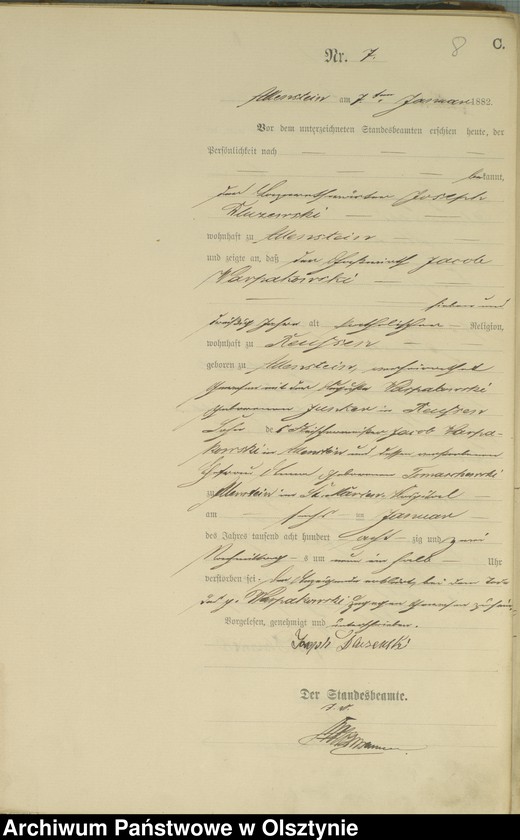 8 C.
Nr. 7.
Allenstein am 7ten Januar 1882.
Vor dem unterzeichneten Standesbeamten erschien heute, der
Persönlichkeit nach
bekannt,
der Lazarethwärter Joseph
wohnhaft zu Allenstein
und zeigte an, daß der Jacob
Warpakowski
sieben und
dreißig Jahre alt katholischer Religion,
wohnhaft zu Reussen
geboren zu Allenstein, verheirathet
gewesen mit der Auguste Warpakowski
geborenen Junker in Reussen
Sohn des Jacob Warpa-
kowski in Allenstein und dessen verstorbenen
Ehefrau Anna, geborenen
zu Allenstein im St. Marien-Hospital
am sechs ten Januar
des Jahres tausend acht hundert acht zig und zwei
Nachmittags um neun ein halb Uhr
verstorben sei. Der Anzeigende erklärt, bei dem Tode
des p. Warpakowski zugegen gewesen zu sein.
Vorgelesen, genehmigt und unterschrieben.
Joseph
Der Standesbeamte.
Archiwum Państwowe w Olsztynie